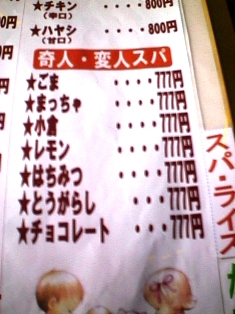 ★チキン ････800円
(辛口)
★ハヤシ ････800円
(甘口)
奇人・変人スパ
★ごま ････777円
★まっちゃ ････777円
★小倉 ････777円
★レモン ････777円
★はちみつ ････777円
★とうがらし ･･･777円
★チョコレート ･･･777円
スパ・ライス